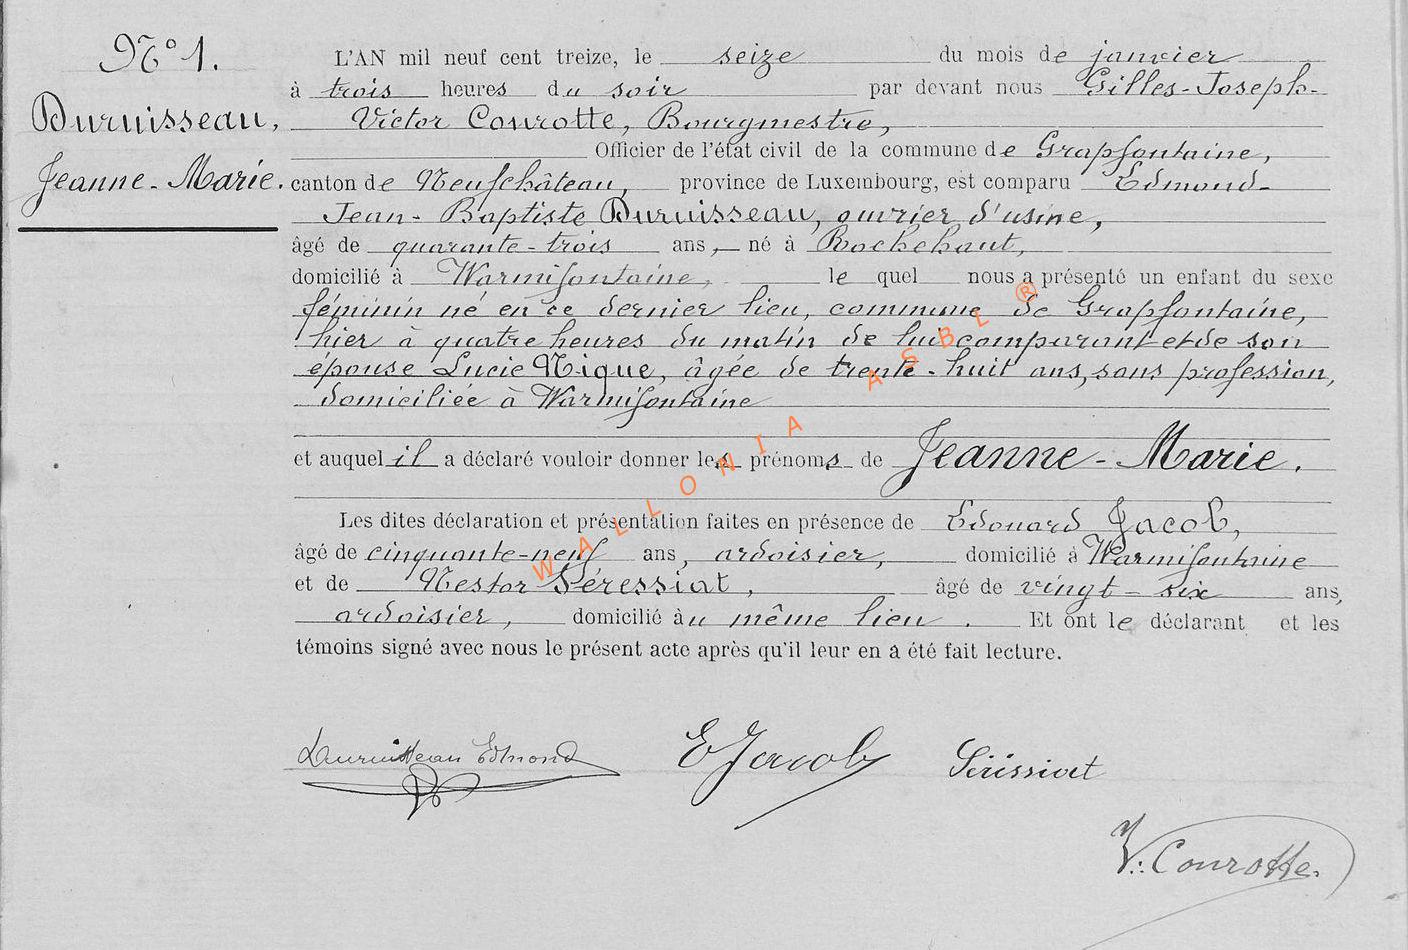 N° 1.
Duruisseau,
Jeanne-Marie.
L'AN mil neuf cent treize, le seize du mois de janvier
à trois heures du soir par devant nous Gilles-Joseph-
Victor Courotte, Bourgmestre,
Officier de l'état civil de la commune de Grapfontaine,
canton de Neufchâteau, province de Luxembourg, est comparu Edmond-
Jean-Baptiste Duruisseau, ouvrier d'usine,
âgé de quarante-trois ans, né à Rochehaut,
domicilié à Warmifontaine, le quel nous a présenté un enfant du sexe
féminin né en ce dernier lieu, commune de Grapfontaine,
hier à quatre heures du matin de lui comparant et de son
épouse Lucie Nique, âgée de trente-huit ans, sans profession,
domiciliée à Warmifontaine
et auquel il a déclaré vouloir donner les prénoms de Jeanne-Marie.
Les dites déclaration et présentation faites en présence de Edouard Jacob,
âgé de cinquante-neuf ans, ardoisier, domicilié à Warmifontaine
et de Nestor Séressiat, âgé de vingt-six ans,
ardoisier, domicilié au même lieu. Et ont le déclarant et les
témoins signé avec nous le présent acte après qu'il leur en a été fait lecture.
Duruisseau Edmond
E Jacob
Séressiat
V. Courotte.
WALLONIA ASBL ®